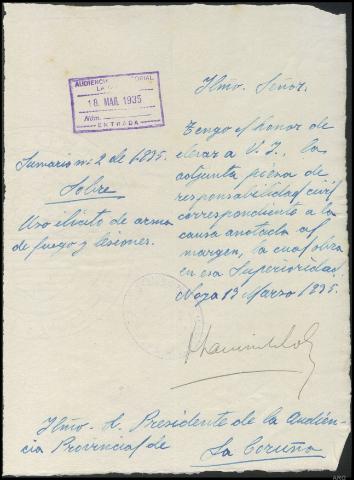 AUDIENCIA TERRITORIAL
LA
18 MAR. 1935
Núm.
ENTRADA
Sumario nº 2 de 1935.
Sobre
Uso ilicito de arma
de fuego y lesiones.
Ilmo. Señor.
Tengo el honor de
elevar a V. I., la
adjunta pieza de
responsabilidad civil
correspondiente a la
causa anotada al
margen, la cual obra
en esa Superioridad.
Noya 13 Marzo 1935.
Ilmo. Sr. Presidente de la Audién-
cia Provincial de
La Coruña